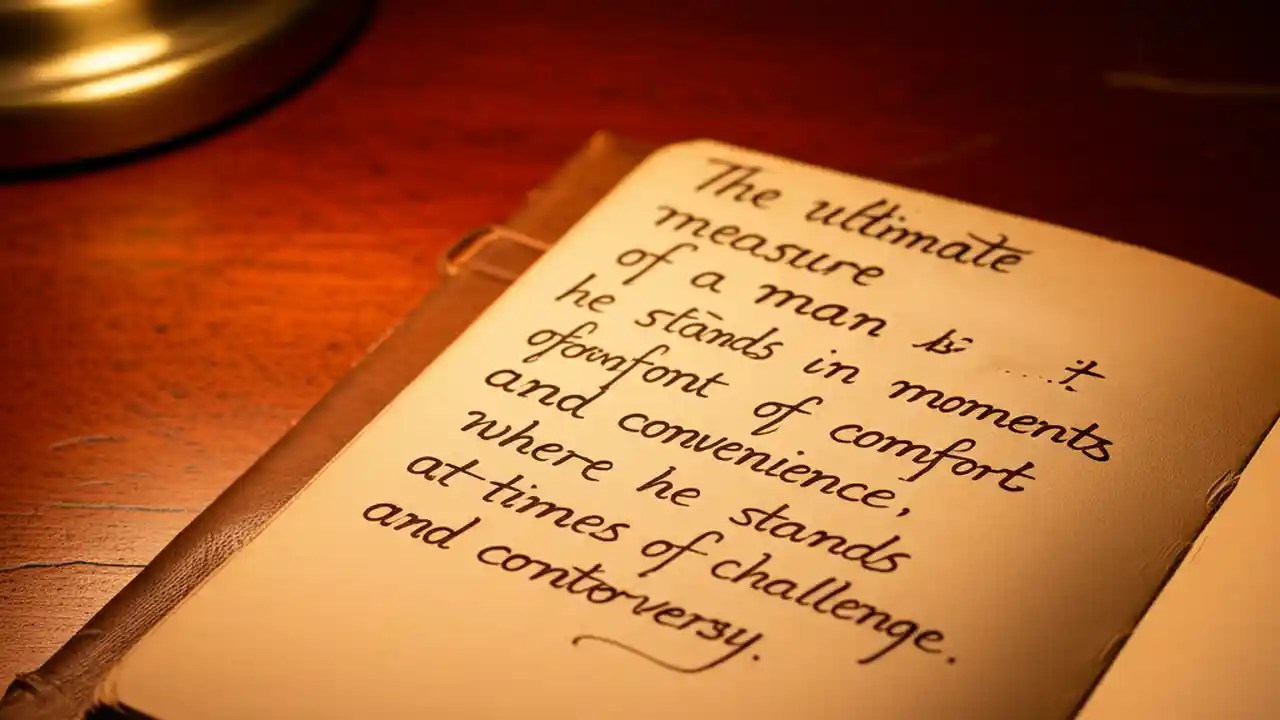 The ultimate
measure
of a man is
he stands in moments
of comfort
and convenience,
where he stands
at-times of challenge.
and controversy.